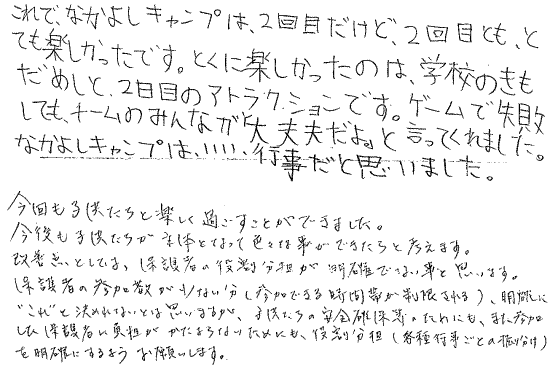 これで、なかよしキャンプは、2回目だけど、2回目も、と
ても楽しかったです。とくに楽しかったのは、学校のきも
だめしと、2日目のアトラクションです。ゲームで失敗
しても、チームのみんなが大丈夫だよ。と言ってくれました。
なかよしキャンプは、いい、行事だと思いました。
今回も子供たちと楽しく過ごすことができました。
今後も子供たちが主体となって色々な事ができたらと考えます。
改善点としては、保護者の役割分担が明確でない事と思います。
保護者の参加数が少ない分(参加できる時間帯が制限される)、明確に
"これ"と決めれないとは思いますが、子供たちの安全確保等のためにも、また参加
した保護者に負担がかたよらないためにも、役割分担(各種行事ごとの振分け)
を明確にするようお願いします。